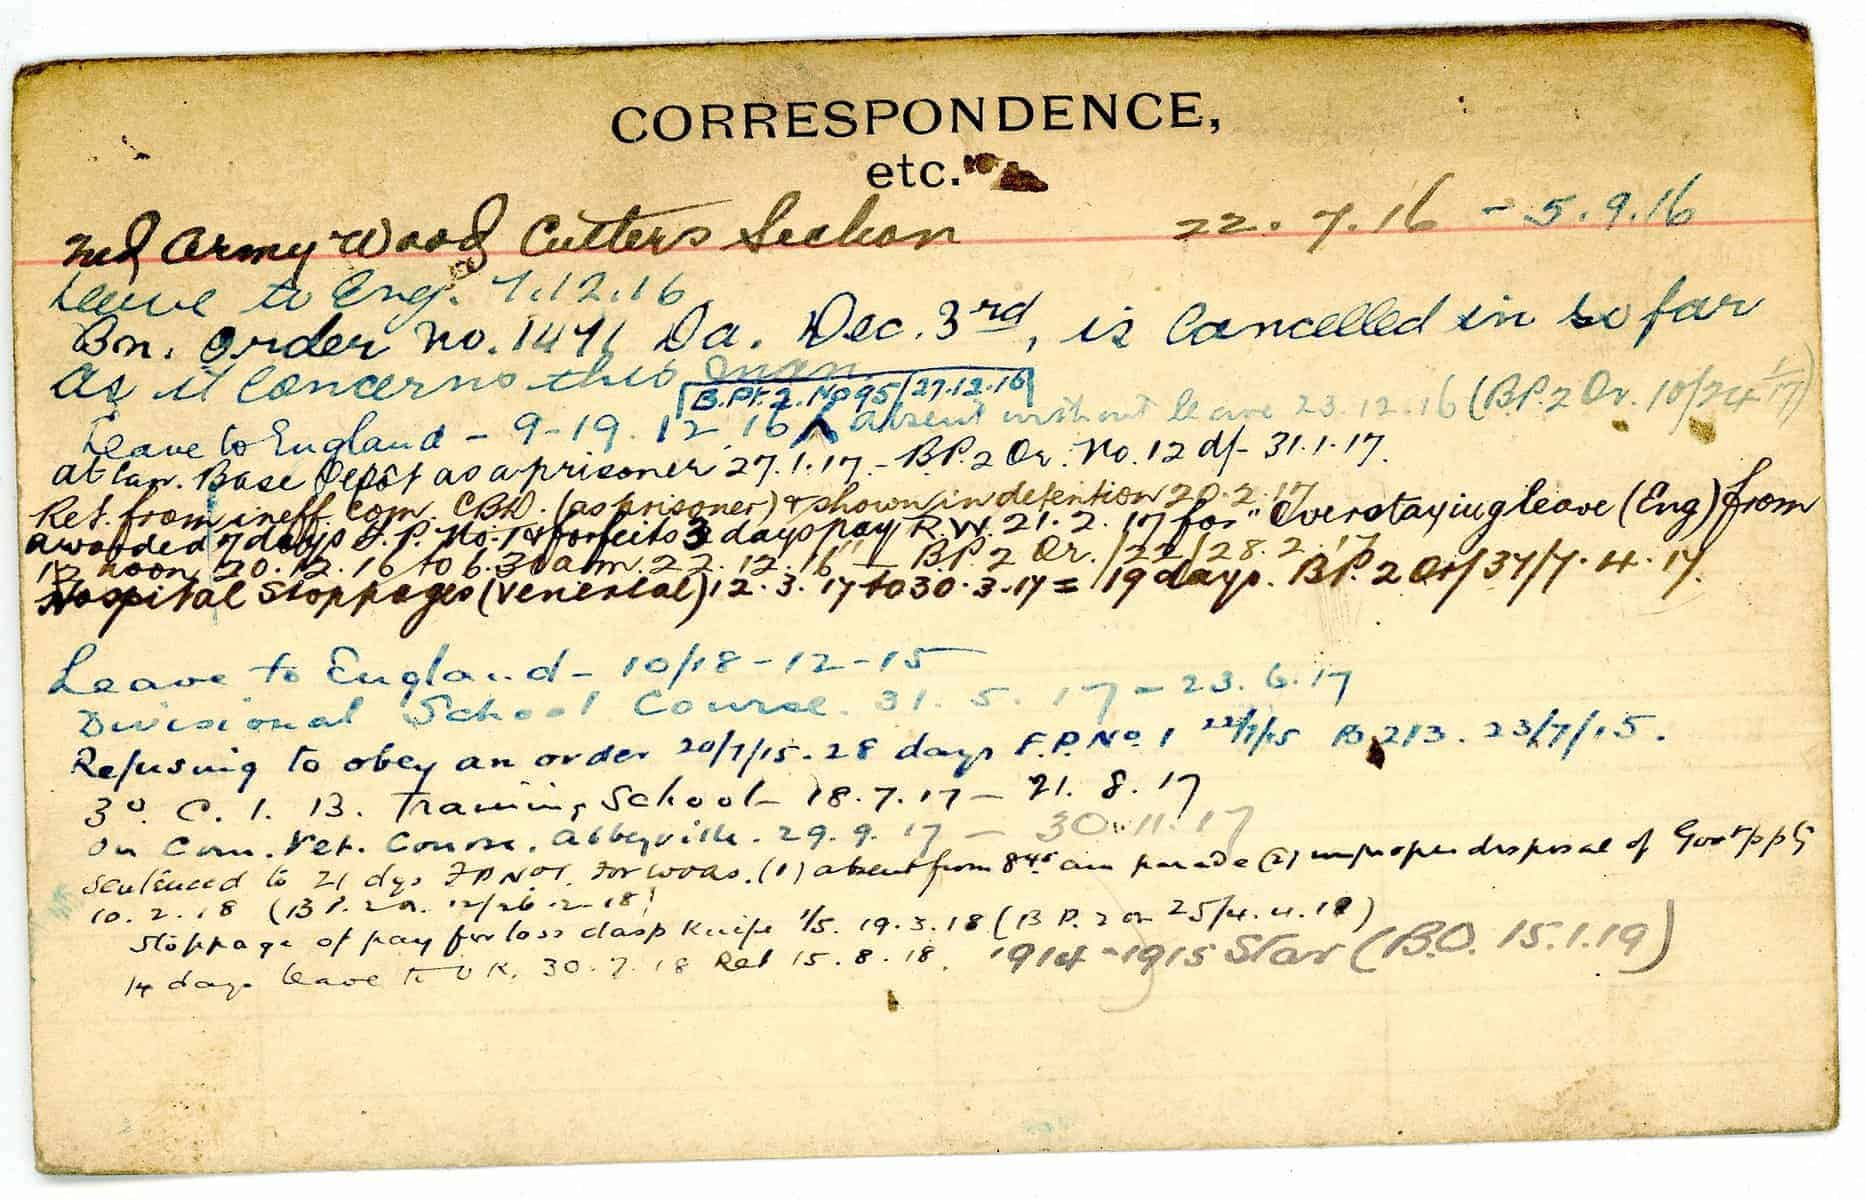 CORRESPONDENCE,
etc.
2nd Army Wood Cutters Section 22.7.16 - 5.9.16
Leave to Eng. 7.12.16
Bn. Order No. 1471 Da. Dec. 3rd, is Cancelled in so far
as it Concerns this man
B.Pt.2.No95/27.12.16
Leave to England - 9-19.12.16 absent without leave 23.12.16 (B.P.2 Or. 10/24/1/17)
at Can. Base Depôt as a prisoner 27.1.17 - B.P.2 Or. No. 12 d/- 31.1.17.
Ret. from ineff. Com. CBD. (as prisoner) & shown in detention 20.2.17
awarded 7 days F.P. No. 1 & forfeits 3 days pay R.W. 21.2.17 for "Overstaying leave (Eng) from
12 noon 20.12.16 to 6.30 a.m. 22.12.16" - B.P.2 Or. /22/28.2.17
Hospital Stoppages (venereal) 12.3.17 to 30.3.17 = 19 days. B.P.2 Or/37/7.4.17.
Leave to England - 10/18-12-15
Divisional School Course. 31.5.17 - 23.6.17
Refusing to obey an order 20/7/15. 28 days F.P. No. 1 22/7/15 B 213. 23/7/15.
3d. C.I.B. Training School - 18.7.17 - 21.8.17
On Com. Vet. Course, Abbeyville. 29.9.17 - 30.11.17
Sentenced to 21 dys FP No 1. for WOAS. (1) absent from 8 45 am parade (2) improper disposal of Govt ppty
10.2.18 (B P.2 or. 12/26.2.18)
Stoppage of pay for loss clasp Knife 1/5. 19.3.18 (B P.2 or 25/4.4.18)
14 days leave to U K. 30.7.18 Ret 15.8.18. 1914-1915 Star (B.O. 15.1.19)